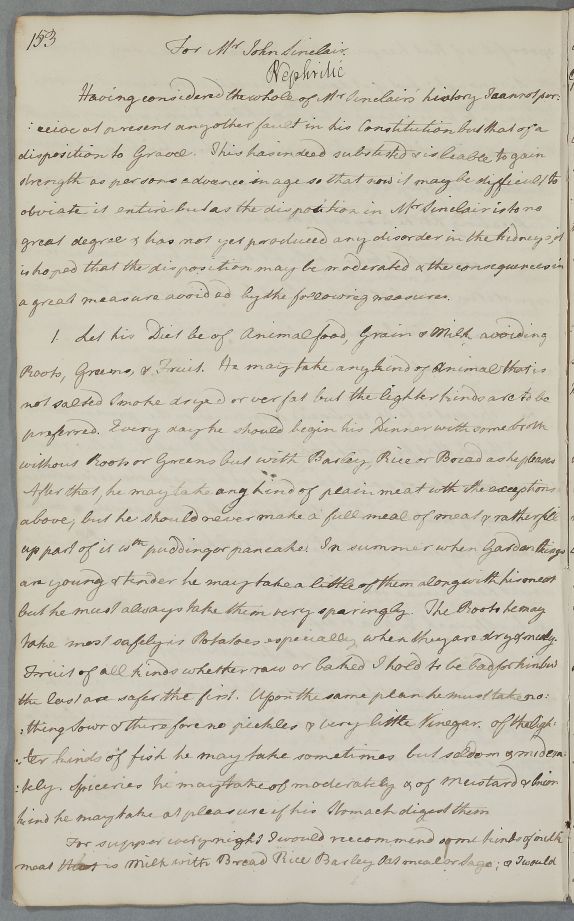 153
For Mr John Sinclair.
Nephritic
Having considered the whole of Mr Sinclairs history I cannot per:
:ceive at present any other fault in his Constitution but that of a
disposition to Gravel. This has indeed subsisted & is leable to gain
strength as persons advance in age so that now it may be difficult to
obviate it entire but as the disposition in Mr Sinclair is to no
great degree & has not yet produced any disorder in the kidneys it
is hoped that the disposition may be moderated & the consequences in
a great measure avoided by the following measures.
1. Let his Diet be of Animal food, Grain & Milk avoiding
Roots, Greens, & Fruit. He may take any kind of Animal that is
not salted Smoke dryed or very fat but the lighter kinds are to be
preferred. Every day he should begin his Dinner with some broth
without Roots or Greens but with Barley, Rice or Bread as he pleases
After that, he may take any kind of plain meat with the exceptions
above, but he should never make a full meal of meat & rather fill
up part of it wth pudding or pancake. In summer when Garden things
are young & tender he may take a little of them along with his meat
but he must always take them very sparingly. The Roots he may
take most safely is Potatoes especially when they are dry & mealy.
Fruit of all kinds whether raw or baked I hold to be bad for him but
the last are safer the first. Upon the same plan he must take no:
:thing sour & therefore no pickles & very little Vinegar. of the ligh:
:ter kinds of fish he may take sometimes but seldom & modera:
:tely. Spiceries he may take of moderately & of Mustard &
kind he may take at pleasure if his Stomach digest them
For supper every night I would recommend some kinds of milk
meat that is Milk with Bread Rice Barley Oatmeal or Sago; & I would